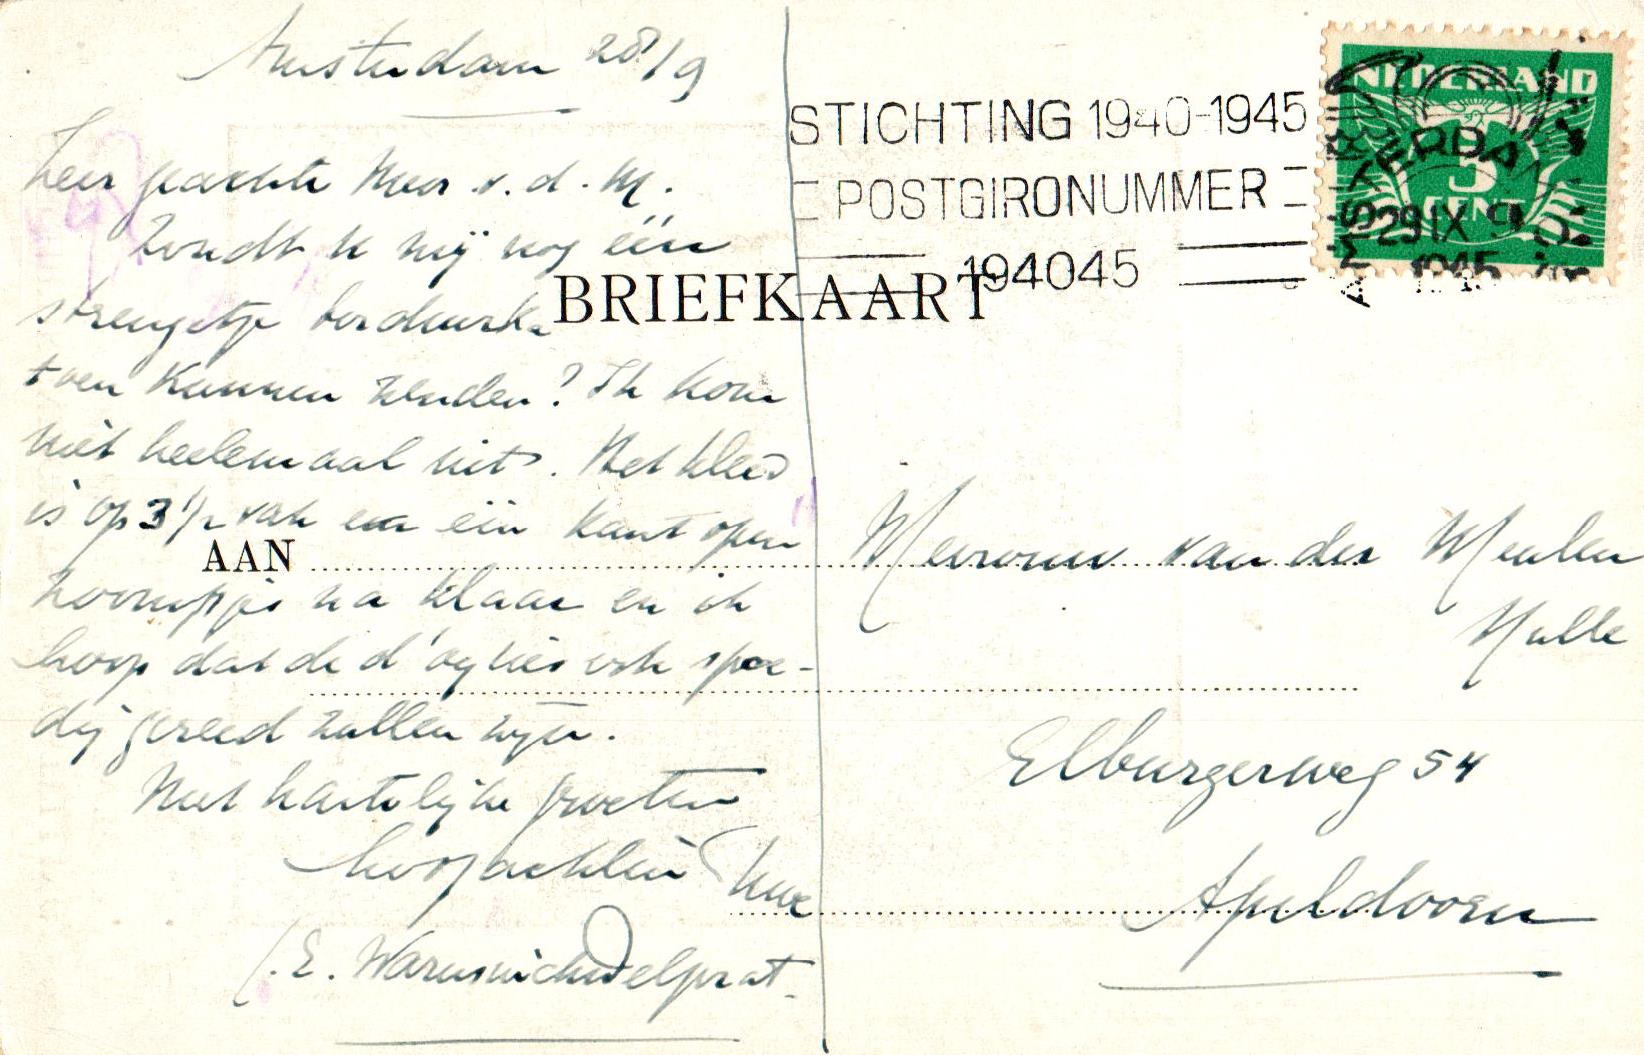 Amsterdam 28/9
Zeer geachte Mevr. v. d. M.
Zoudt U mij nog één
strengetje borduurka-
toen kunnen zenden? Ik kom
niet heelemaal uit. Het kleed
is op 3 1/2 vak en één kant open
na klaar en ik
hoop dat de ook spoe-
dig gereed zullen zijn.
Met hartelijke groeten
hoogachtend Uwe
E. Warnsinck-Delprat.
BRIEFKAART
AAN
STICHTING 1940-1945
POSTGIRONUMMER
194045
NEDERLAND
5
CENT
AMSTERDAM
29 IX 9
1945
Mevrouw van der Meulen
Nulle
Elburgerweg 54
Apeldoorn